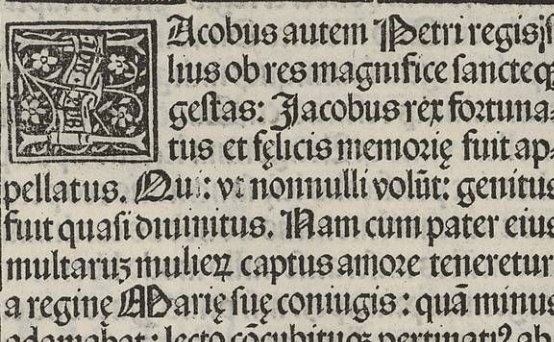 IAcobus autem Petri regis fi
lius ob res magnifice sancteqȝ
gestas: Jacobus rex fortuna-
tus et fęlicis memorię fuit ap-
pellatus. Qui: vt nonnulli volūt: genitus
fuit quasi diuinitus. Nam cum pater eius
multaruꝫ mulieꝝ captus amore teneretur
a reginę Marię suę coniugis: quā minus
adamabat: lecto cōcubituqꝫ pertinatiꝰ ab